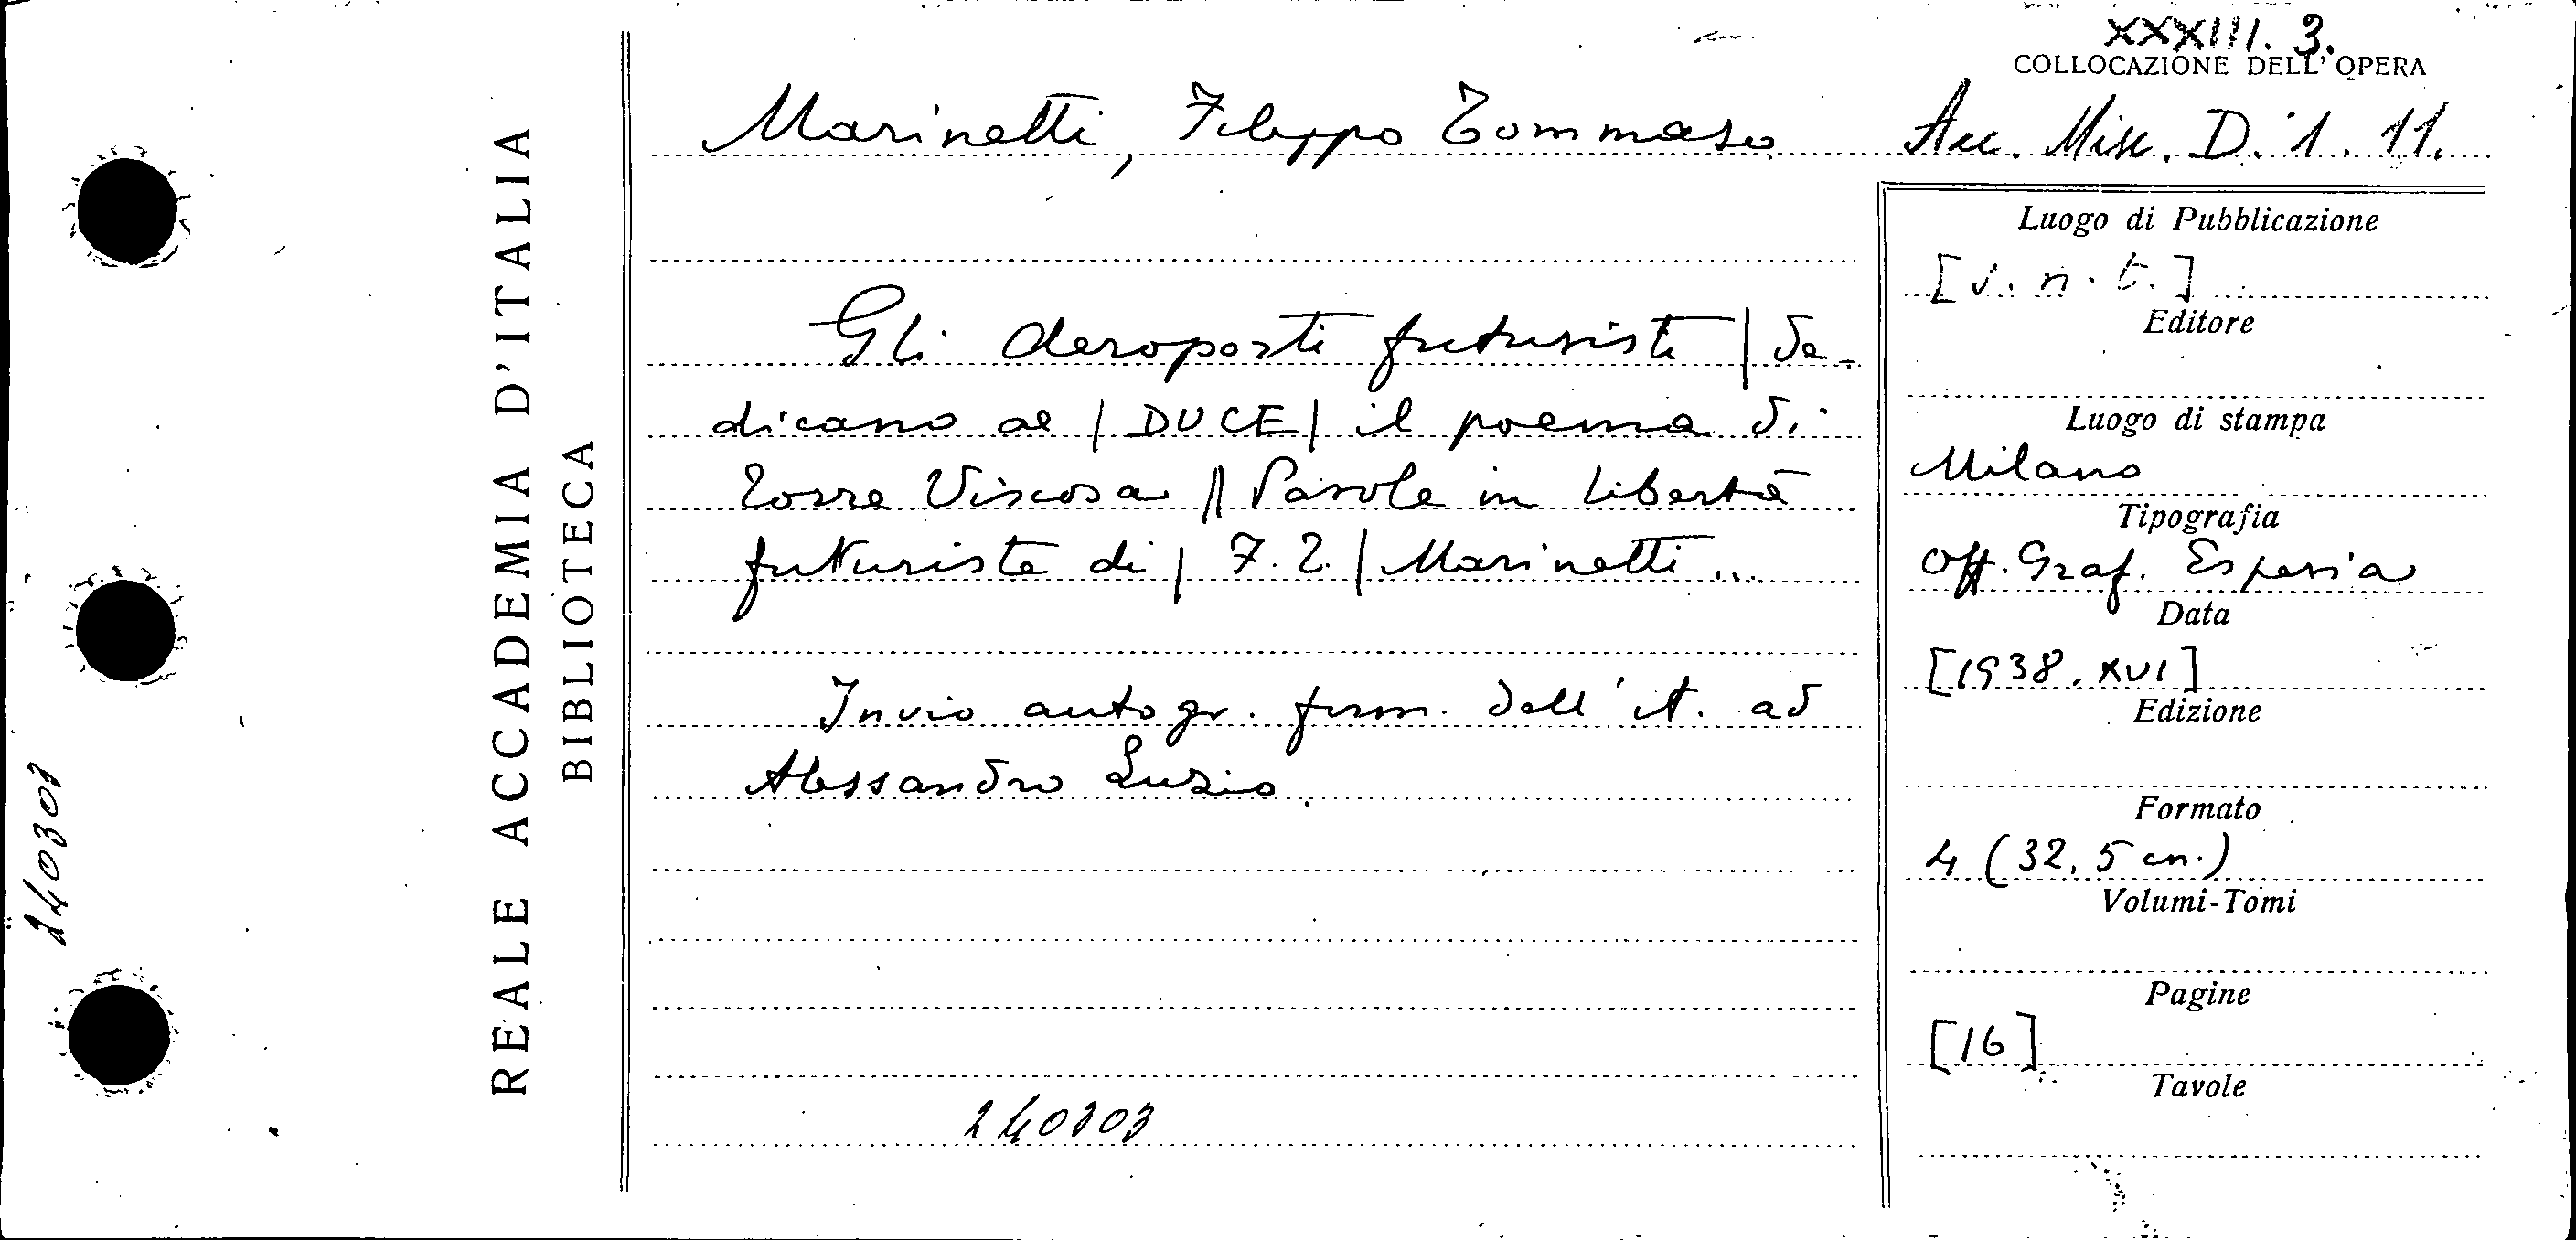 XXXIII. 3.
COLLOCAZIONE DELL'OPERA
Marinetti, Filippo Tommaso
Acc. Misc. D. 1. 11.
REALE ACCADEMIA D'ITALIA
BIBLIOTECA
Gli Aeroporti futuristi | de-
dicano al | DUCE | il poema di
Torre Viscosa || Parole in libertà
futuriste di | F. T. | Marinetti ...
Invio autogr. firm. dell'A. ad
Alessandro Luzio.
240303
240303
Luogo di Pubblicazione
[s. n. t.]
Editore
Luogo di stampa
Milano
Tipografia
Off. Graf. Esperia
Data
[1938. XVI]
Edizione
Formato
4 (32,5 cm.)
Volumi-Tomi
Pagine
[16]
Tavole